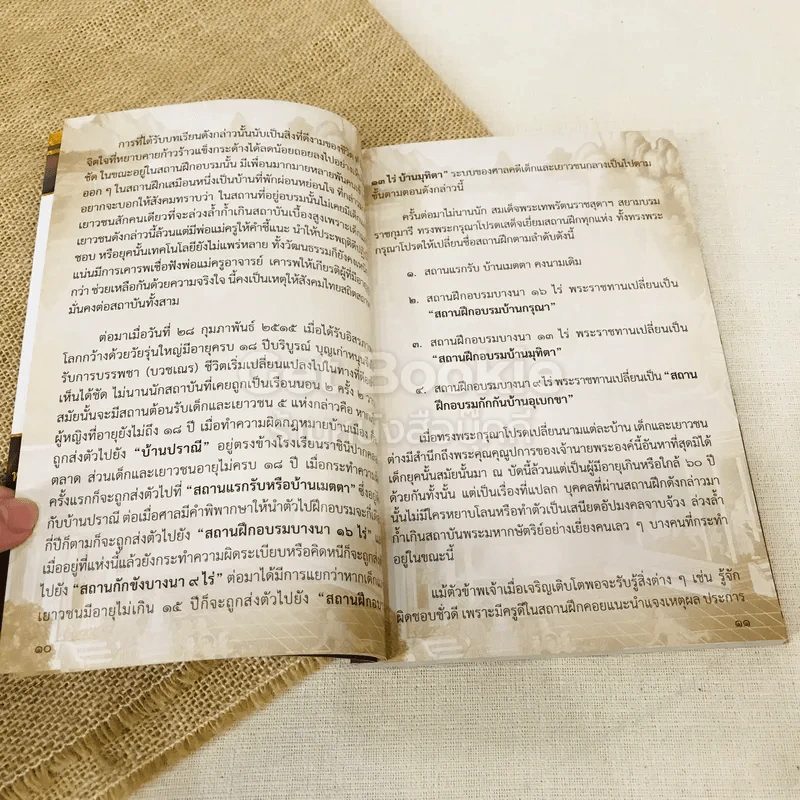 การที่ได้รับบทเรียนดังกล่าวนั้นนับเป็นสิ่งที่ดีงามของชีวิต
จิตใจที่หยาบคายก้าวร้าวแข็งกระด้างได้ลดน้อยถอยลงไปอย่าง
ชัด ในขณะอยู่ในสถานฝึกอบรมนั้น มีเพื่อนมากมายหลายพันคน
ออก ๆ ในสถานฝึกเสมือนหนึ่งเป็นบ้านที่พักผ่อนหย่อนใจ ที่กล่าว
อยากจะบอกให้สังคมทราบว่า ในสถานที่อยู่อบรมนั้นไม่เคยมีเด็ก
เยาวชนสักคนเดียวที่จะล่วงล้ำก้ำเกินสถาบันเบื้องสูงเพราะเด็ก
เยาวชนดังกล่าวนี้ล้วนแต่มีพ่อแม่ครูให้คำชี้แนะ นำให้ประพฤติดี
ชอบ หรือยุคนั้นเทคโนโลยียังไม่แพร่หลาย ทั้งวัฒนธรรมก็ยังคง
แน่นมีการเคารพเชื่อฟังพ่อแม่ครูอาจารย์ เคารพให้เกียรติผู้ที่มีอายุ
กว่า ช่วยเหลือกันด้วยความจริงใจ นี้คงเป็นเหตุให้สังคมไทยสถิต
มั่นคงต่อสถาบันทั้งสาม
ต่อมาเมื่อวันที่ ๒๘ กุมภาพันธ์ ๒๕๑๕ เมื่อได้รับอิสรภาพ
โลกกว้างด้วยวัยรุ่นใหญ่มีอายุครบ ๑๘ ปีบริบูรณ์ บุญเก่าหนุน
รับการบรรพชา (บวชเณร) ชีวิตเริ่มเปลี่ยนแปลงไปในทางที่ดี
เห็นได้ชัด ไม่นานนักสถาบันที่เคยถูกเป็นเรือนนอน ๒ ครั้ง ๒
สมัยนั้นจะมีสถานต้อนรับเด็กและเยาวชน ๕ แห่งกล่าวคือ หาก
ผู้หญิงที่อายุยังไม่ถึง ๑๘ ปี เมื่อทำความผิดกฎหมายบ้านเมือง
ถูกส่งตัวไปยัง "บ้านปรานี" อยู่ตรงข้างโรงเรียนราชินีปากคลอง
ตลาด ส่วนเด็กและเยาวชนอายุไม่ครบ ๑๘ ปี เมื่อกระทำความ
ครั้งแรกก็จะถูกส่งตัวไปที่ "สถานแรกรับหรือบ้านเมตตา" ซึ่งอยู่
กับบ้านปรานี ต่อเมื่อศาลมีคำพิพากษาให้นำตัวไปฝึกอบรมจะกี่เดือน
กี่ปีก็ตามก็จะถูกส่งตัวไปยัง "สถานฝึกอบรมบางนา ๑๖ ไร่"
เมื่ออยู่ที่แห่งนี้แล้วยังกระทำความผิดระเบียบหรือคิดหนีก็จะถูกส่ง
ไปยัง "สถานกักขังบางนา ๙ ไร่" ต่อมาได้มีการแยกว่าหากเด็กและ
เยาวชนมีอายุไม่เกิน ๑๕ ปีก็จะถูกส่งตัวไปยัง "สถานฝึกอบ
๑๐
๑๓ ไร่ บ้านมุทิตา" ระบบของศาลคดีเด็กและเยาวชนกลางเป็นไปตาม
ขั้นตามตอนดังกล่าวนี้
ครั้นต่อมาไม่นานนัก สมเด็จพระเทพรัตนราชสุดาฯ สยามบรม
ราชกุมารี ทรงพระกรุณาโปรดเสด็จเยี่ยมสถานฝึกทุกแห่ง ทั้งทรงพระ
กรุณาโปรดให้เปลี่ยนชื่อสถานฝึกตามลำดับดังนี้
๑. สถานแรกรับ บ้านเมตตา คงนามเดิม
๒. สถานฝึกอบรมบางนา ๑๖ ไร่ พระราชทานเปลี่ยนเป็น
"สถานฝึกอบรมบ้านกรุณา"
๓. สถานฝึกอบรมบางนา ๑๓ ไร่ พระราชทานเปลี่ยนเป็น
"สถานฝึกอบรมบ้านมุทิตา"
๔. สถานฝึกอบรมบางนา ๙ ไร่ พระราชทานเปลี่ยนเป็น "สถาน
ฝึกอบรมกักกันบ้านอุเบกขา"
เมื่อทรงพระกรุณาโปรดเปลี่ยนนามแต่ละบ้าน เด็กและเยาวชน
ต่างมีสำนึกถึงพระคุณคูณปูการของเจ้านายพระองค์นี้อันหาที่สุดมิได้
เด็กยุคนั้นสมัยนั้นมา ณ บัดนี้ล้วนแต่เป็นผู้มีอายุเกินหรือใกล้ ๖๐ ปี
ด้วยกันทั้งนั้น แต่เป็นเรื่องที่แปลก บุคคลที่ผ่านสถานฝึกดังกล่าวมา
นั้นไม่มีใครหยาบโลนหรือทำตัวเป็นเสนียดอัปมงคลจาบจ้วง ล่วงล้ำ
ก้ำเกินสถาบันพระมหากษัตริย์อย่างเยี่ยงคนเลว ๆ บางคนที่กระทำ
อยู่ในขณะนี้
แม้ตัวข้าพเจ้าเมื่อเจริญเติบโตพอจะรับรู้สิ่งต่าง ๆ เช่น รู้จัก
ผิดชอบชั่วดี เพราะมีครูดีในสถานฝึกคอยแนะนำแจงเหตุผล ประการ
๑๑